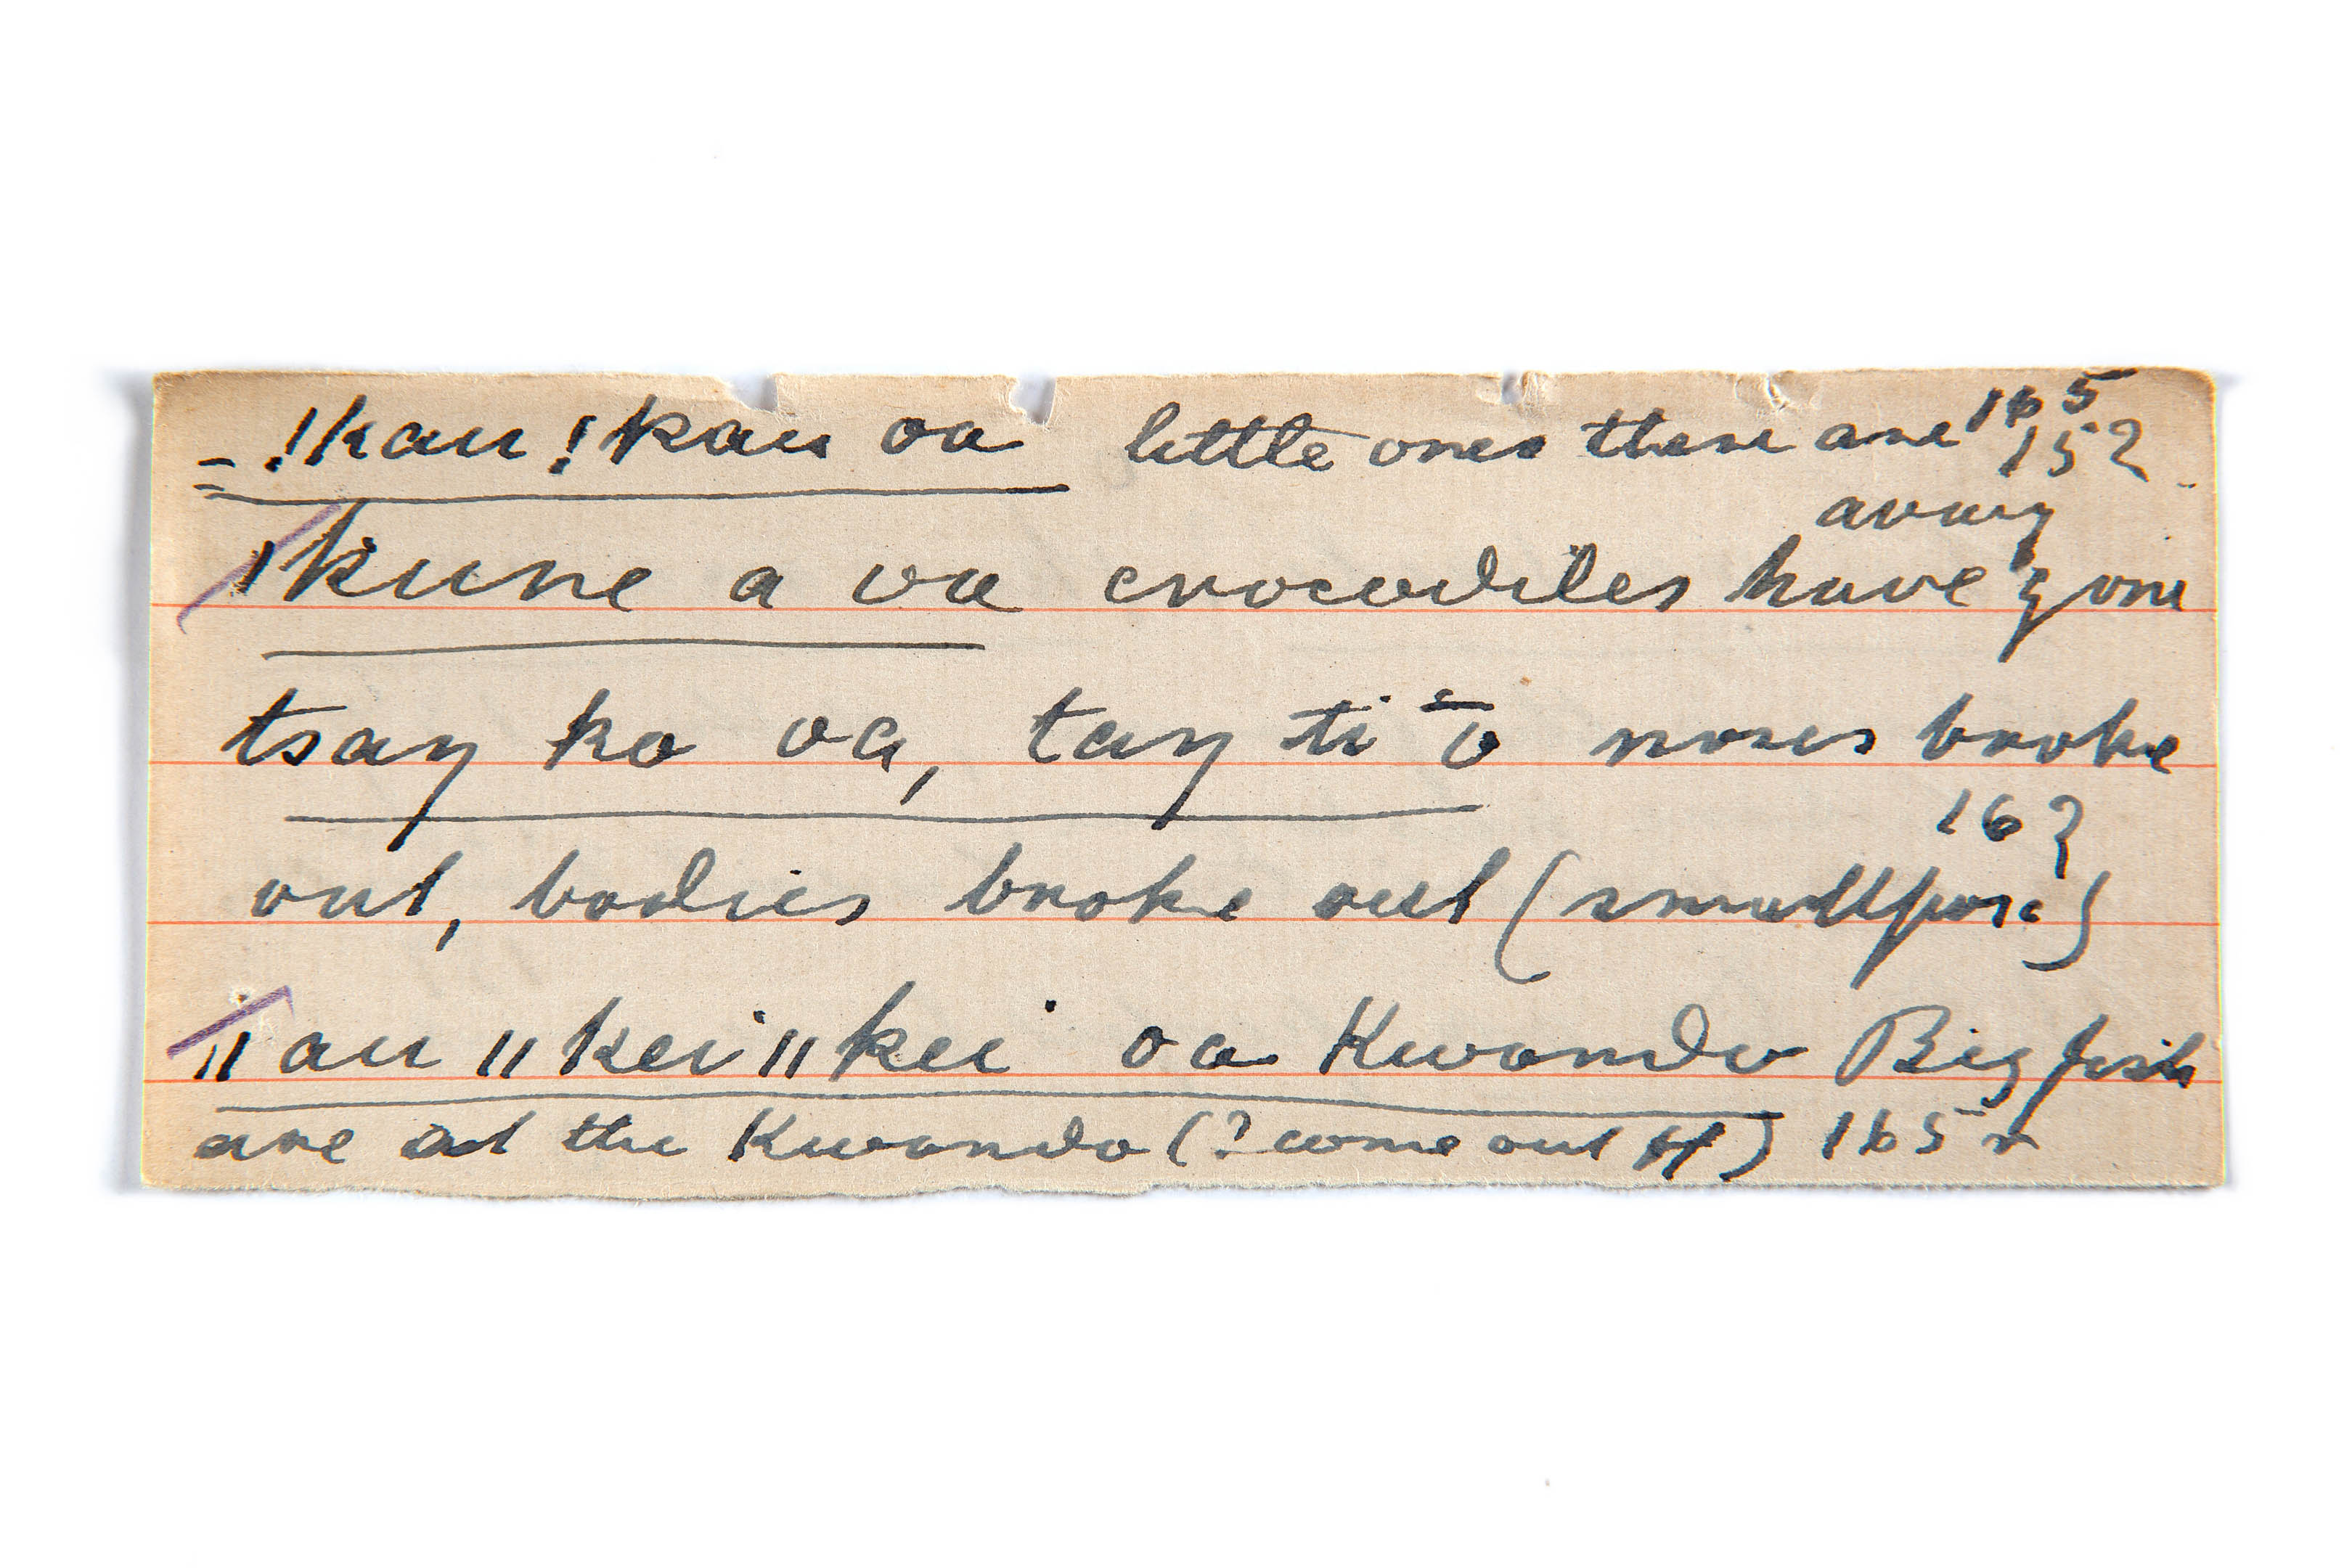 = !kau !kau oa little ones there are 165
152
away
ǀkune a oa crocodiles have gone
tsaŋ ko oa, taŋ ti ō noses broke
162
out, bodies broke out (smallpox)
ǁau ǁkei ǁkei oa Kwando Big fish
are at the Kwando (? come out of) 165